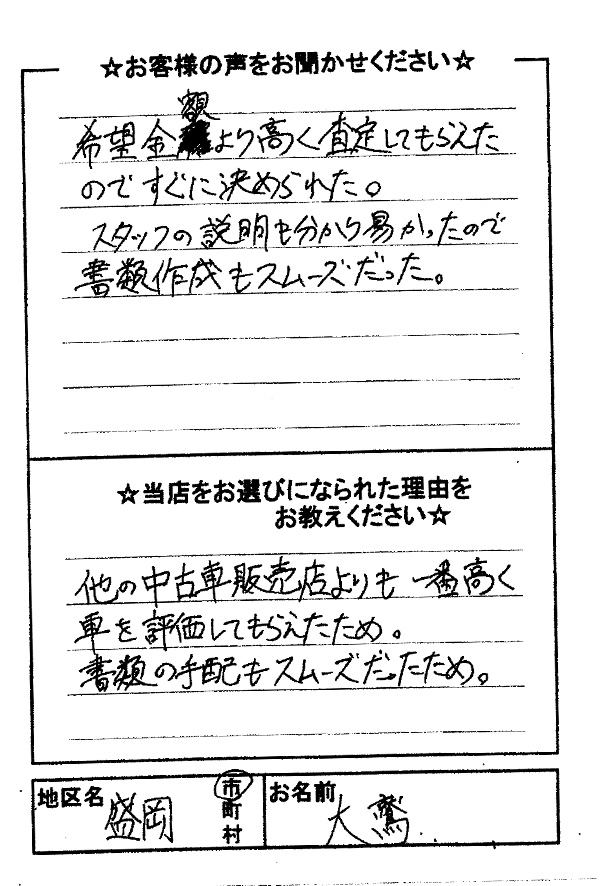 ☆お客様の声をお聞かせください☆
希望金額より高く査定してもらえた
のですぐに決められた。
スタッフの説明も分かり易かったので
書類作成もスムーズだった。
☆当店をお選びになられた理由を
お教えください☆
他の中古車販売店よりも一番高く
車を評価してもらえたため。
書類の手配もスムーズだったため。
地区名 盛岡 市町村 お名前 大鷲